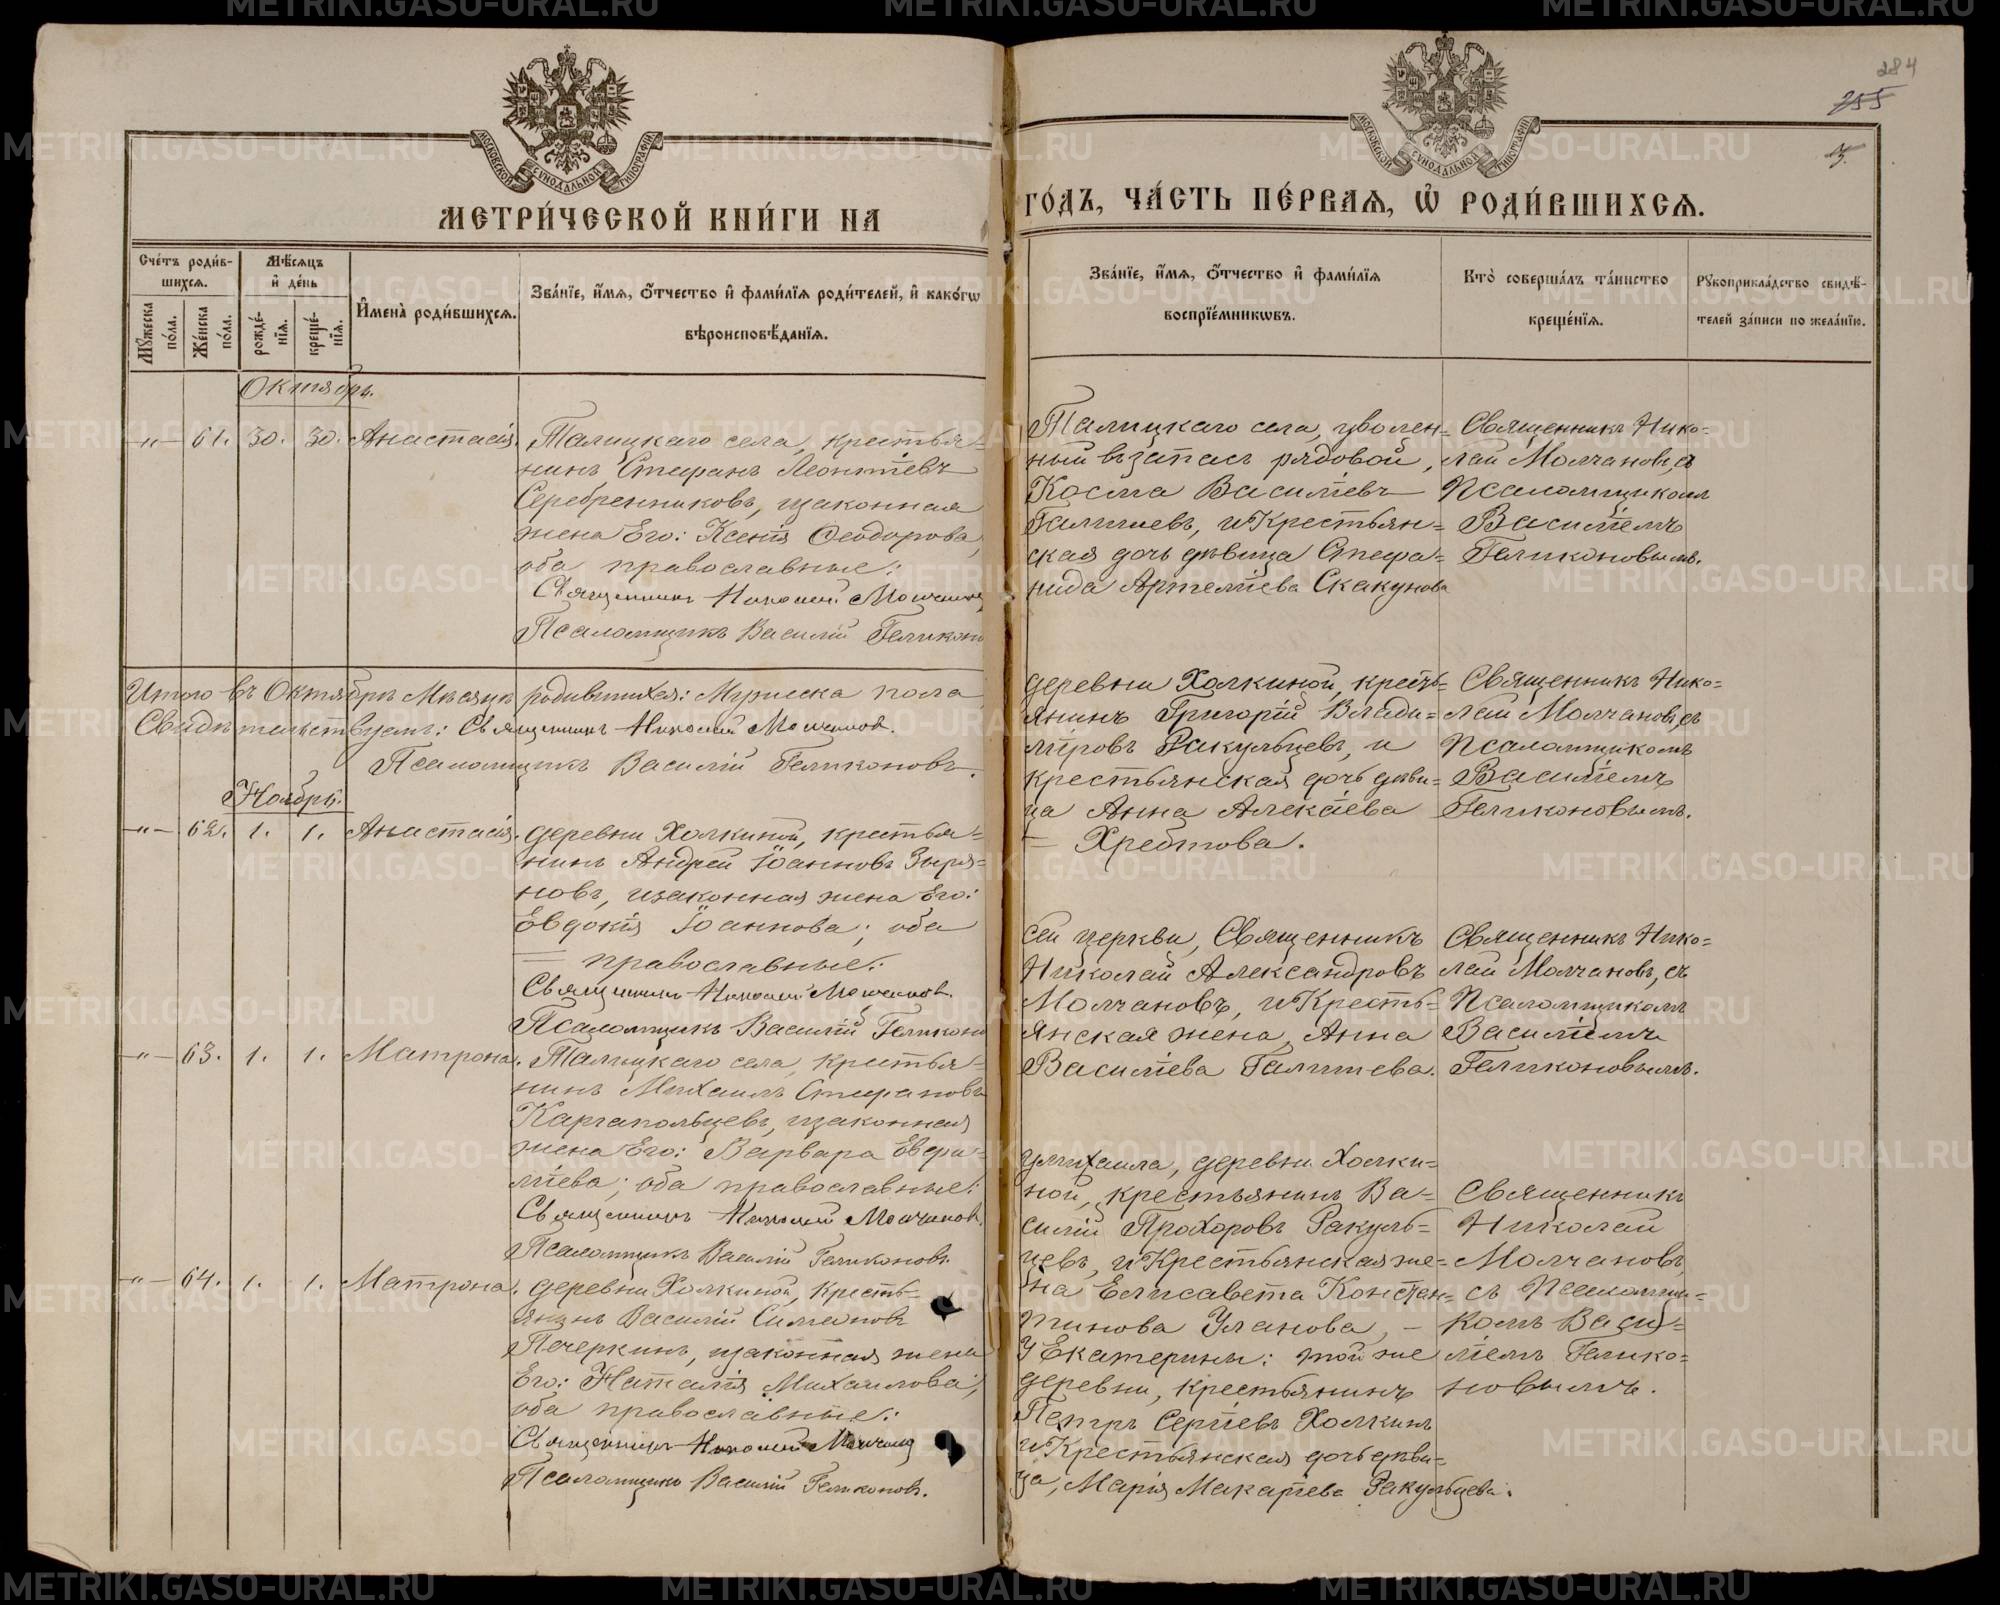 284
255
МОСКОВСКОЙ СѴНОДАЛЬНОЙ ТИПОГРАФІИ
МЕТРИ́ЧЕСКОЙ КНИ́ГИ НА
Сче́тъ роди́в-
шихсѧ.
Мꙋ́жеска по́ла.
Же́нска по́ла.
Мѣ́сѧцъ
и҆ де́нь
рожде́-
нїѧ.
креще́-
нїѧ.
И҆мена̀ роди́вшихсѧ.
Зва́нїе, и҆́мѧ, ѻ҆́тчество и҆ фами́лїѧ роди́телей, и҆ како́гѡ
вѣроисповѣ́данїѧ.
Октябрь.
-„- 61. 30. 30. Анастасія.
Талицкаго села, крестья=
нинъ Стефанъ Леонтіевъ
Серебренниковъ, изаконная
жена Его: Ксенія Ѳеодорова,
оба православные:
Священникъ Николай Молчановъ
Псаломщикъ Василій Геликонов
Итого въ Октябрѣ Мѣсяцѣ родившихся: Мужеска пола
Свидѣтельствуемъ: Священникъ Николай Молчановъ.
Псаломщикъ Василій Геликоновъ.
Ноябрь.
-„- 62. 1. 1. Анастасія.
деревни Холкиной, крестья=
нинъ Андрей Іоанновъ Зыря=
новъ, изаконная жена Его:
Евдокія Іоаннова; оба
— православные:
Священникъ Николай Молчановъ.
Псаломщикъ Василій Геликонов
-„- 63. 1. 1. Матрона.
Талицкаго села, крестья=
нинъ Михаилъ Стефановъ
Каргапольцевъ, изаконная
жена Его: Варвара Евфи=
міева; оба православные:
Священникъ Николай Молчановъ.
Псаломщикъ Василій Геликоновъ.
-„- 64. 1. 1. Матрона.
деревни Холкиной, Кресть=
янинъ Василій Симеоновъ
Печеркинъ, изаконная жена
Его: Наталія Михаилова;
оба православные:
Священникъ Николай Молчановъ
Псаломщикъ Василій Геликоновъ.
МОСКОВСКОЙ СѴНОДАЛЬНОЙ ТИПОГРАФІИ
ГО́ДЪ, ЧА́СТЬ ПЕ́РВАѦ, Ѽ РОДИ́ВШИХСѦ.
Зва́нїе, и҆́мѧ, ѻ҆́тчество и҆ фами́лїѧ
воспрїе́мникѡвъ.
Кто̀ соверша́лъ та́инство
креще́нїѧ.
Рꙋкоприкла́дство свидѣ́-
телей за́писи по жела́нїю.
Талицкаго села, уволен=
ный въ запасъ рядовой,
Косма Василіевъ
Галишевъ, и Крестьян=
ская дочь дѣвица Стефа=
нида Артеміева Скакунова
Священникъ Нико=
лай Молчановъ, съ
Псаломщикомъ
Василіемъ
Геликоновымъ.
деревни Холкиной, кресть=
янинъ Григорій Влади=
міровъ Ракульцевъ, и
крестьянская дочь дѣви=
ца Анна Алексіева
— Хребтова.
Священникъ Нико=
лай Молчановъ, съ
Псаломщикомъ
Василіемъ
Геликоновымъ.
сей церкви, Священникъ
Николай Александровъ
Молчановъ, и Кресть=
янская жена, Анна
Василіева Галишева.
Священникъ Нико=
лай Молчановъ, съ
Псаломщикомъ
Василіемъ
Геликоновымъ.
у Михаила, деревни Холки=
ной, крестьянинъ Ва=
силій Прохоровъ Ракуль=
цевъ, и Крестьянская же=
на Елисавета Констан=
тинова Уланова, —
У Екатерины: той же
деревни, крестьянинъ
Петръ Сергіевъ Холкинъ
и Крестьянская дочь дѣви=
ца, Марія Макаріева Ракульцева.
Священникъ
Николай
Молчановъ,
съ Псаломщи=
комъ Васи=
ліемъ Гелико=
новымъ.
METRIKI.GASO-URAL.RU